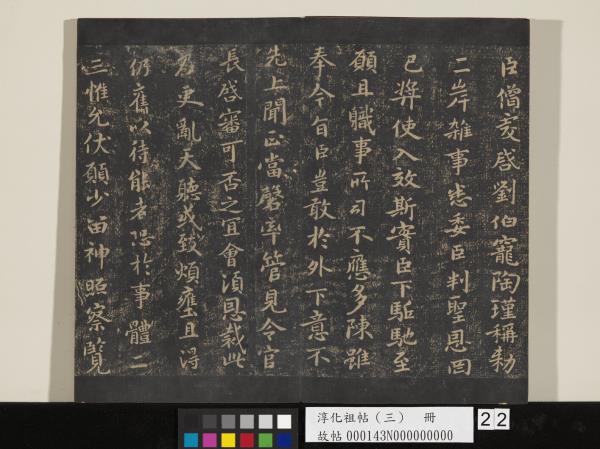 臣僧虔啓劉伯寵陶瑾稱勅
二岸雜事悉委臣判聖恩罔
已獎使入效斯實臣下駈馳至
願且職事所司不應多陳雖
奉今旨臣豈敢於外下意不
先上聞正當罄率管見令官
長啓審可否之宜會須恩裁此
乃更亂天聽或致煩壅且得
仍舊以待能者恐於事體二
三惟允伏願少留神照察覽
淳化祖帖（三） 冊
故帖000143N000000000
22